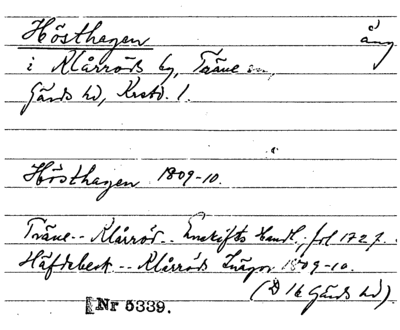 Hösthagen äng
i Klårröds by, Träne sn,
Gärds hd, Krstd. l.
Hösthagen 1809-10.
Träne -- Klårröd -- Enskifts Handl., fol 1727.
Häfdebesk -- Klårröds Inägor 1809-10.
(D 16 Gärds hd).
Nr 5339.